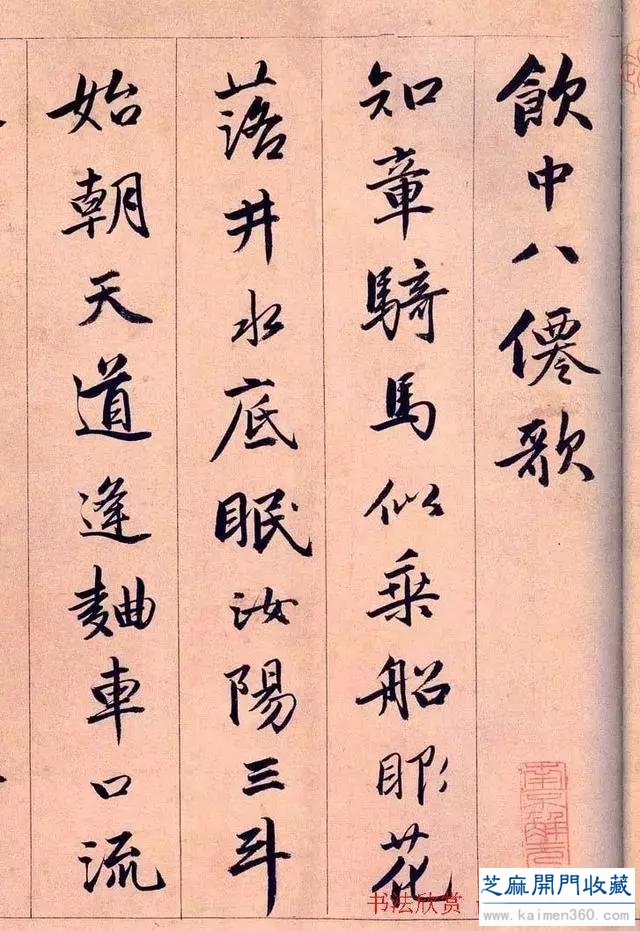 飲中八僊歌
知章騎馬似乘船眼花
落井水底眠汝陽三斗
始朝天道逢麯車口流
书法欣赏
芝麻開門收藏
www.kaimen360.com